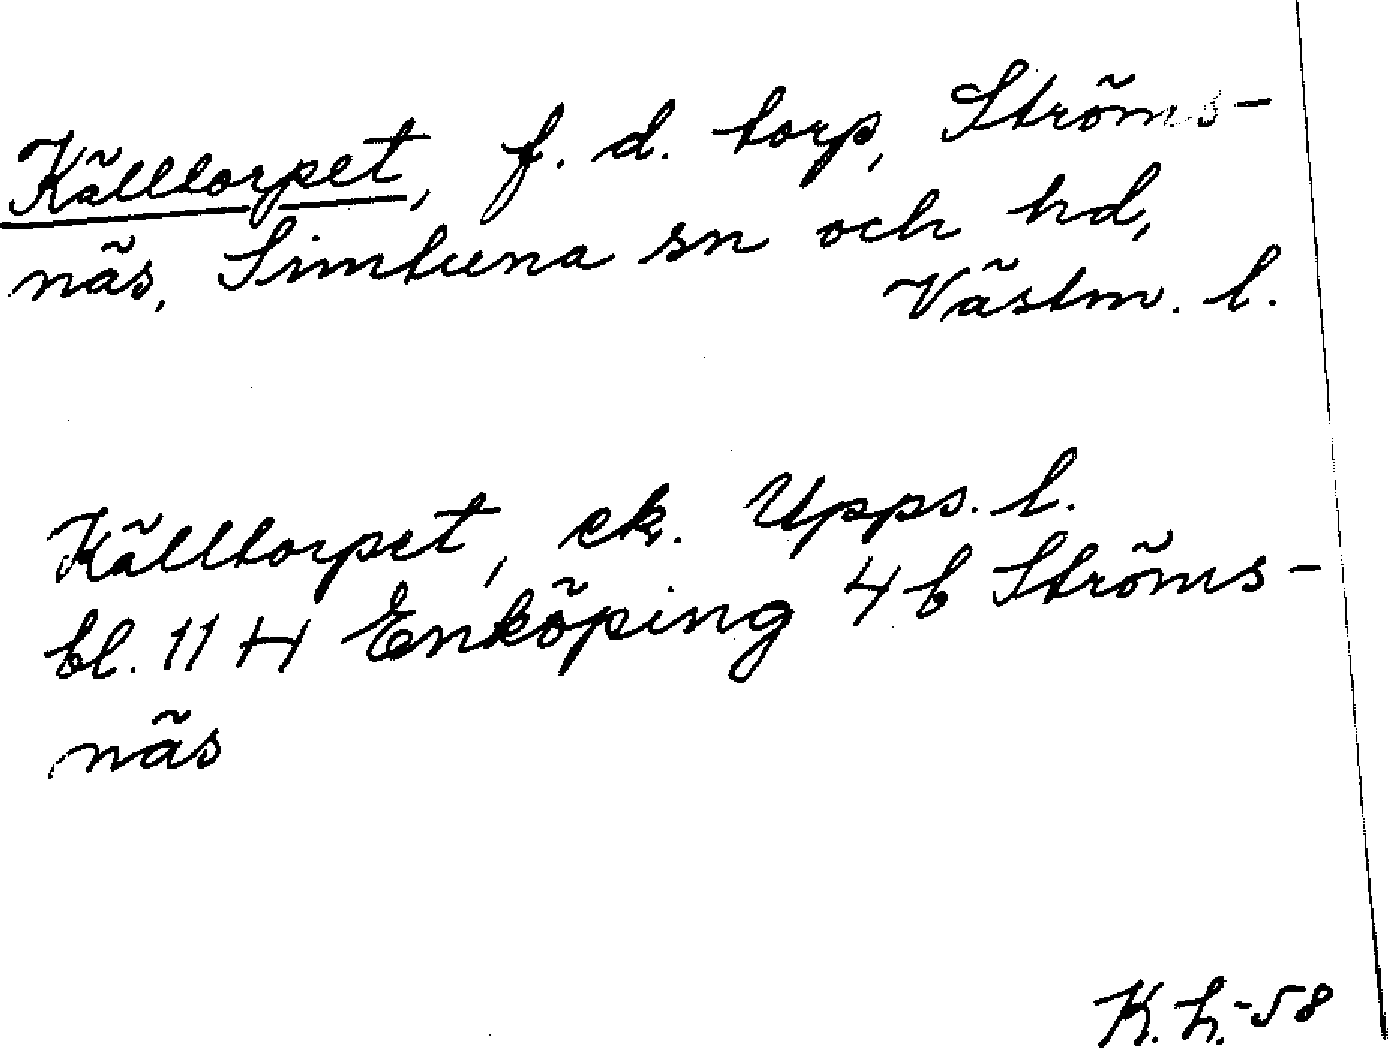 Källtorpet, f. d. torp, Ströms-
näs, Simtuna sn och hd,
Västm. l.
Källtorpet, ek. Upps. l.
bl. 11 H Enköping 4 b Ströms-
näs
K. h. -58